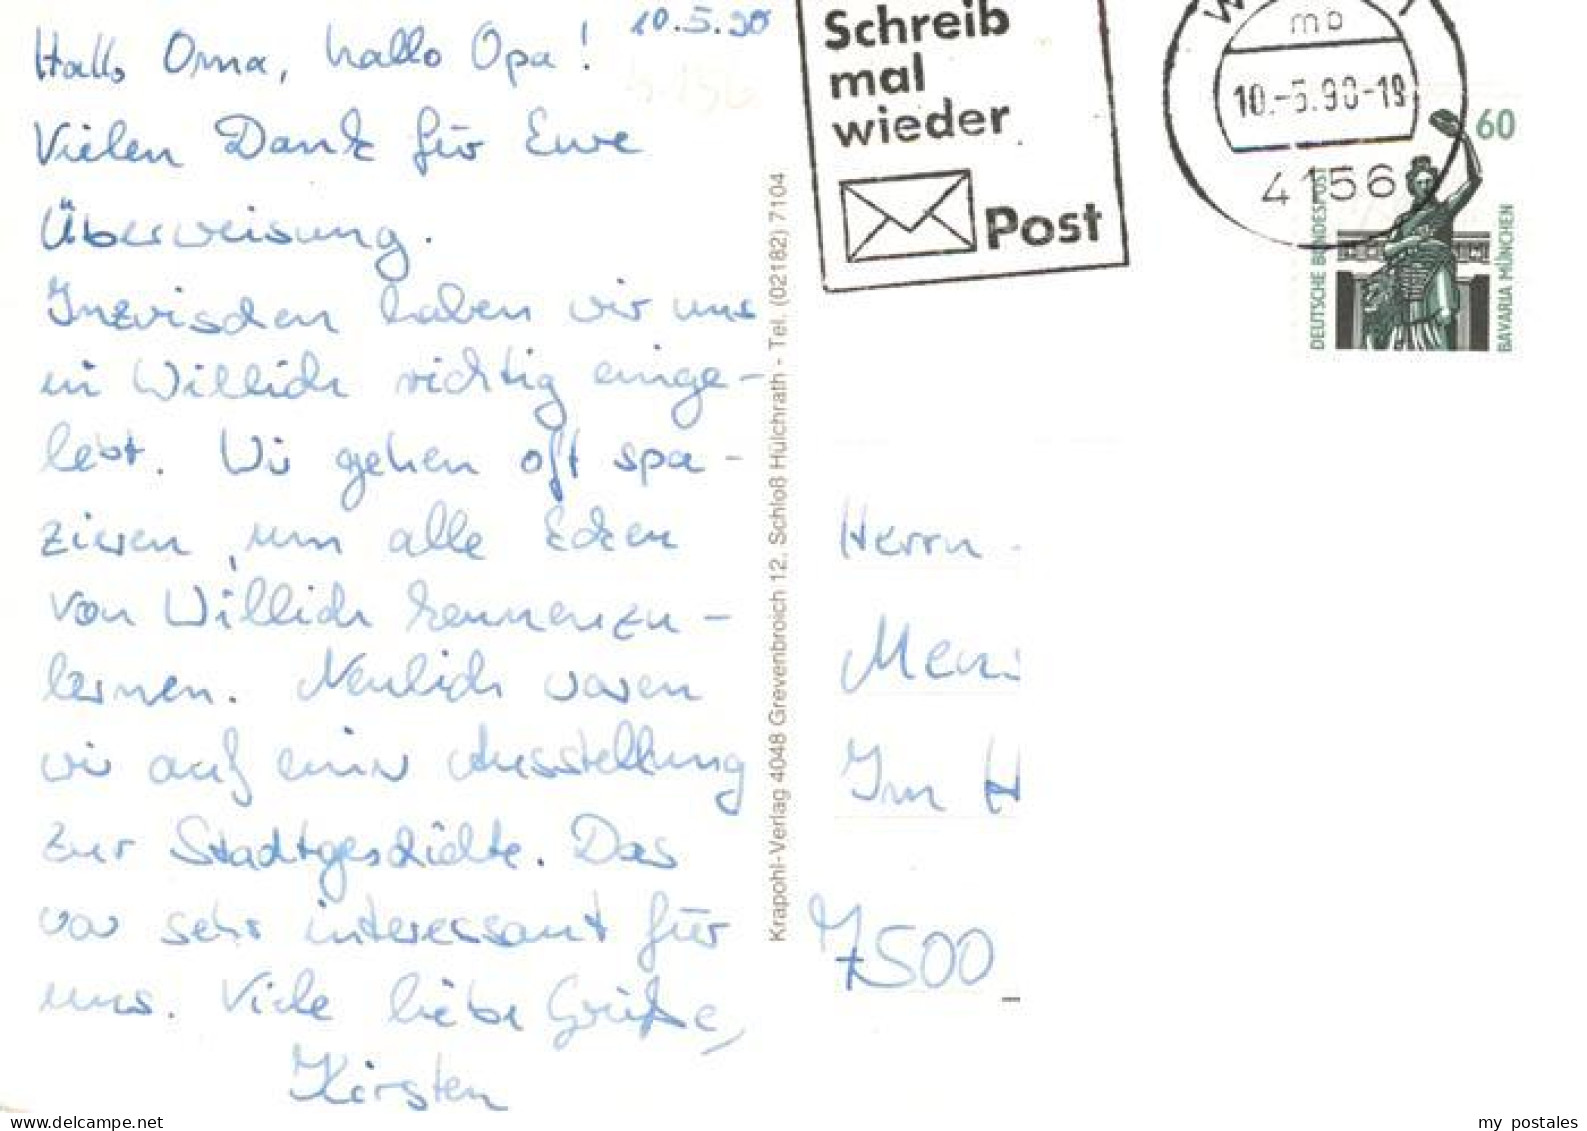 10.5.90
Hallo Oma, hallo Opa!
Vielen Dank für Eure
Überweisung.
Inzwischen haben wir uns
in Willich richtig einge-
lebt. Wir gehen oft spa-
zieren, um alle Ecken
von Willich kennenzu-
lernen. Neulich waren
wir auf einer Ausstellung
zur Stadtgeschichte. Das
war sehr interessant für
uns. Viele liebe Grüße,
Kirsten
Krapohl-Verlag 4048 Grevenbroich 12, Schloß Hülchrath - Tel. (02182) 7104
Schreib
mal
wieder
Post
mb
10.-5.90-19
4156
60
DEUTSCHE BUNDESPOST
BAVARIA MÜNCHEN
Herrn
Im H
7500
www.delcampe.net
my_postales